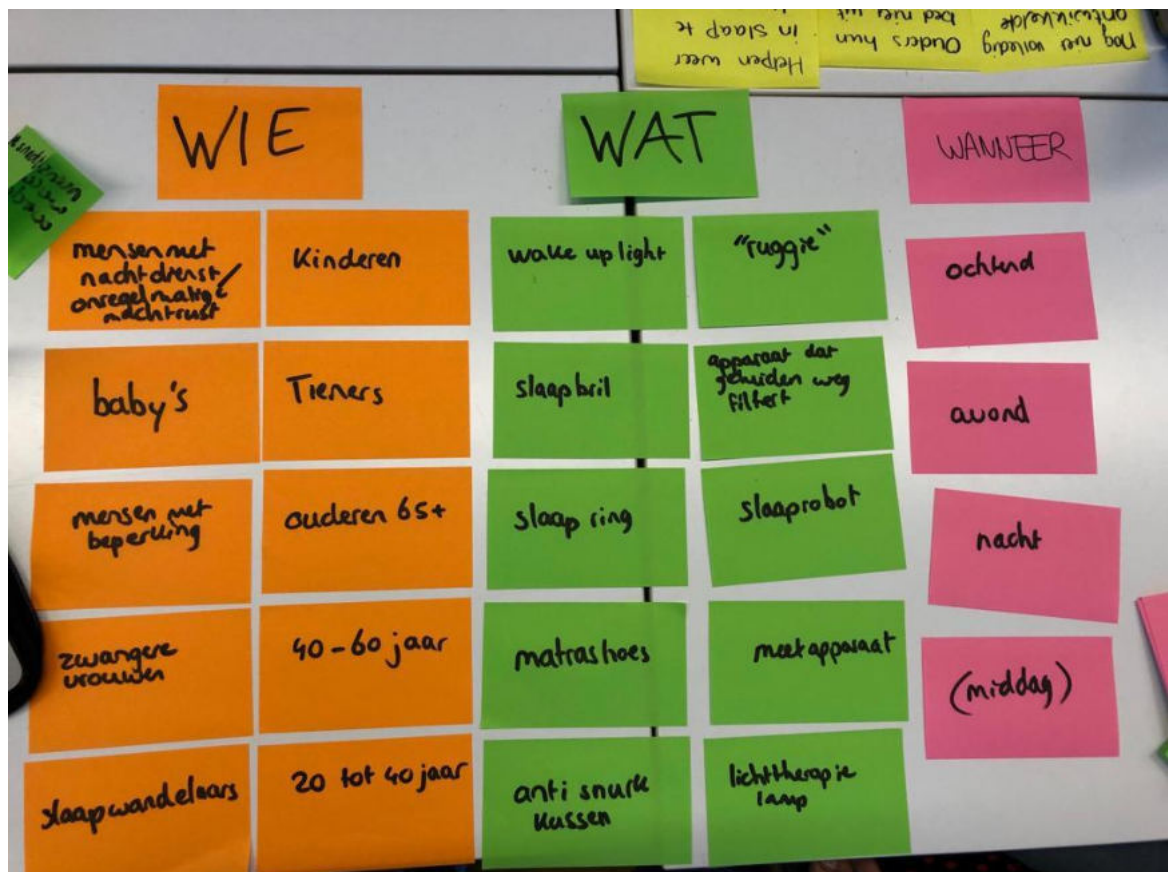 Helpen weer
in slaap te
Ouders hun
bed niet uit
Nog niet volledig
ontwikkelde
WIE
WAT
WANNEER
mensen met
nachtdienst/
onregelmatige
nachtrust
Kinderen
baby's
Tieners
mensen met
beperking
ouderen 65+
zwangere
vrouwen
40-60 jaar
slaapwandelaars
20 tot 40 jaar
wake up light
"ruggie"
slaapbril
apparaat dat
geluiden weg
filtert
slaap ring
slaaprobot
matrashoes
meetapparaat
anti snurk
kussen
lichttherapie
lamp
ochtend
avond
nacht
(middag)